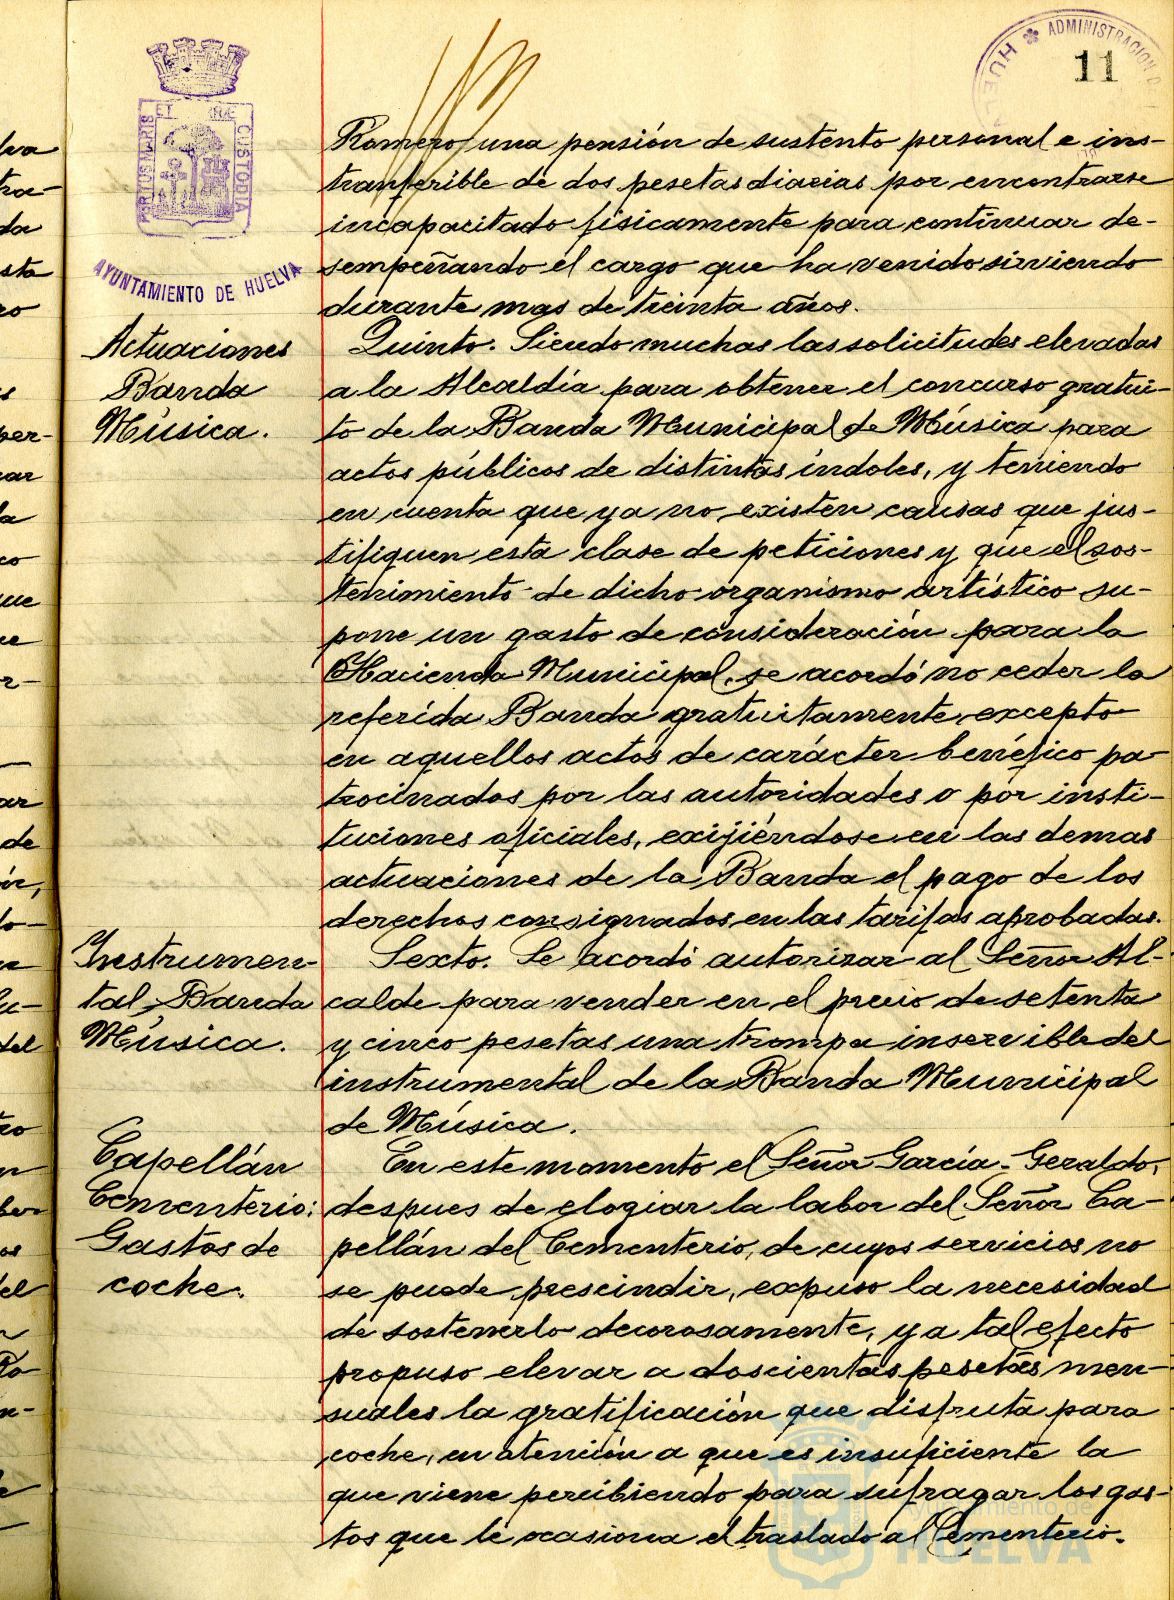 ADMINISTRACION D
HUEL
11
PORTUS MARIS
ET
CUSTODIA
AYUNTAMIENTO DE HUELVA
Romero una pensión de sustento personal e ins-
tranferible de dos pesetas diarias por encontrarse
incapacitado fisicamente para continuar de-
sempeñando el cargo que ha venido sirviendo
durante mas de treinta años.
Actuaciones
Banda
Música.
Quinto. Siendo muchas las solicitudes elevadas
a la Alcaldía para obtener el concurso gratui-
to de la Banda Municipal de Música para
actos públicos de distintas indoles, y teniendo
en cuenta que ya no existen causas que jus-
tifiquen esta clase de peticiones y que el sos-
tenimiento de dicho organismo artístico su-
pone un gasto de consideración para la
Hacienda Municipal, se acordó no ceder la
referida Banda gratuitamente, excepto
en aquellos actos de carácter benéfico pa-
trocinados por las autoridades o por insti-
tuciones oficiales, exijiéndose en las demas
actuaciones de la Banda el pago de los
derechos consignados en las tarifas aprobadas.
Instrumen-
tal Banda
Música.
Sexto. Se acordó autorizar al Señor Al-
calde para vender en el precio de setenta
y cinco pesetas una trompa inservible del
instrumental de la Banda Municipal
de Música.
Capellán
Cementerio:
Gastos de
coche.
En este momento el Señor García-Geraldo,
despues de elogiar la labor del Señor Ca-
pellán del Cementerio, de cuyos servicios no
se puede prescindir, expuso la necesidad
de sostenerlo decorosamente, y a tal efecto
propuso elevar a doscientas pesetas men-
suales la gratificación que disfruta para
coche, en atención a que es insuficiente la
que viene percibiendo para sufragar los gas-
tos que le ocasiona el traslado al Cementerio.
Ayuntamiento de
HUELVA